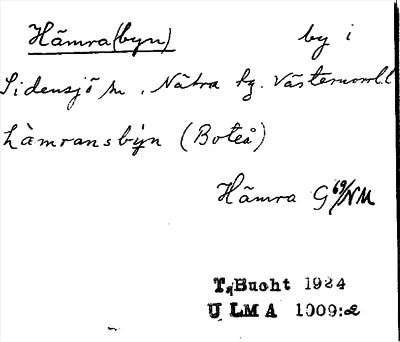 Hämra(byn) by i
Sidensjö sn. Nätra tg. Västernorrl. l
hàmransby̌n (Boteå)
Hämra G 69/NM
T. Bucht 1924
ULMA 1009:2